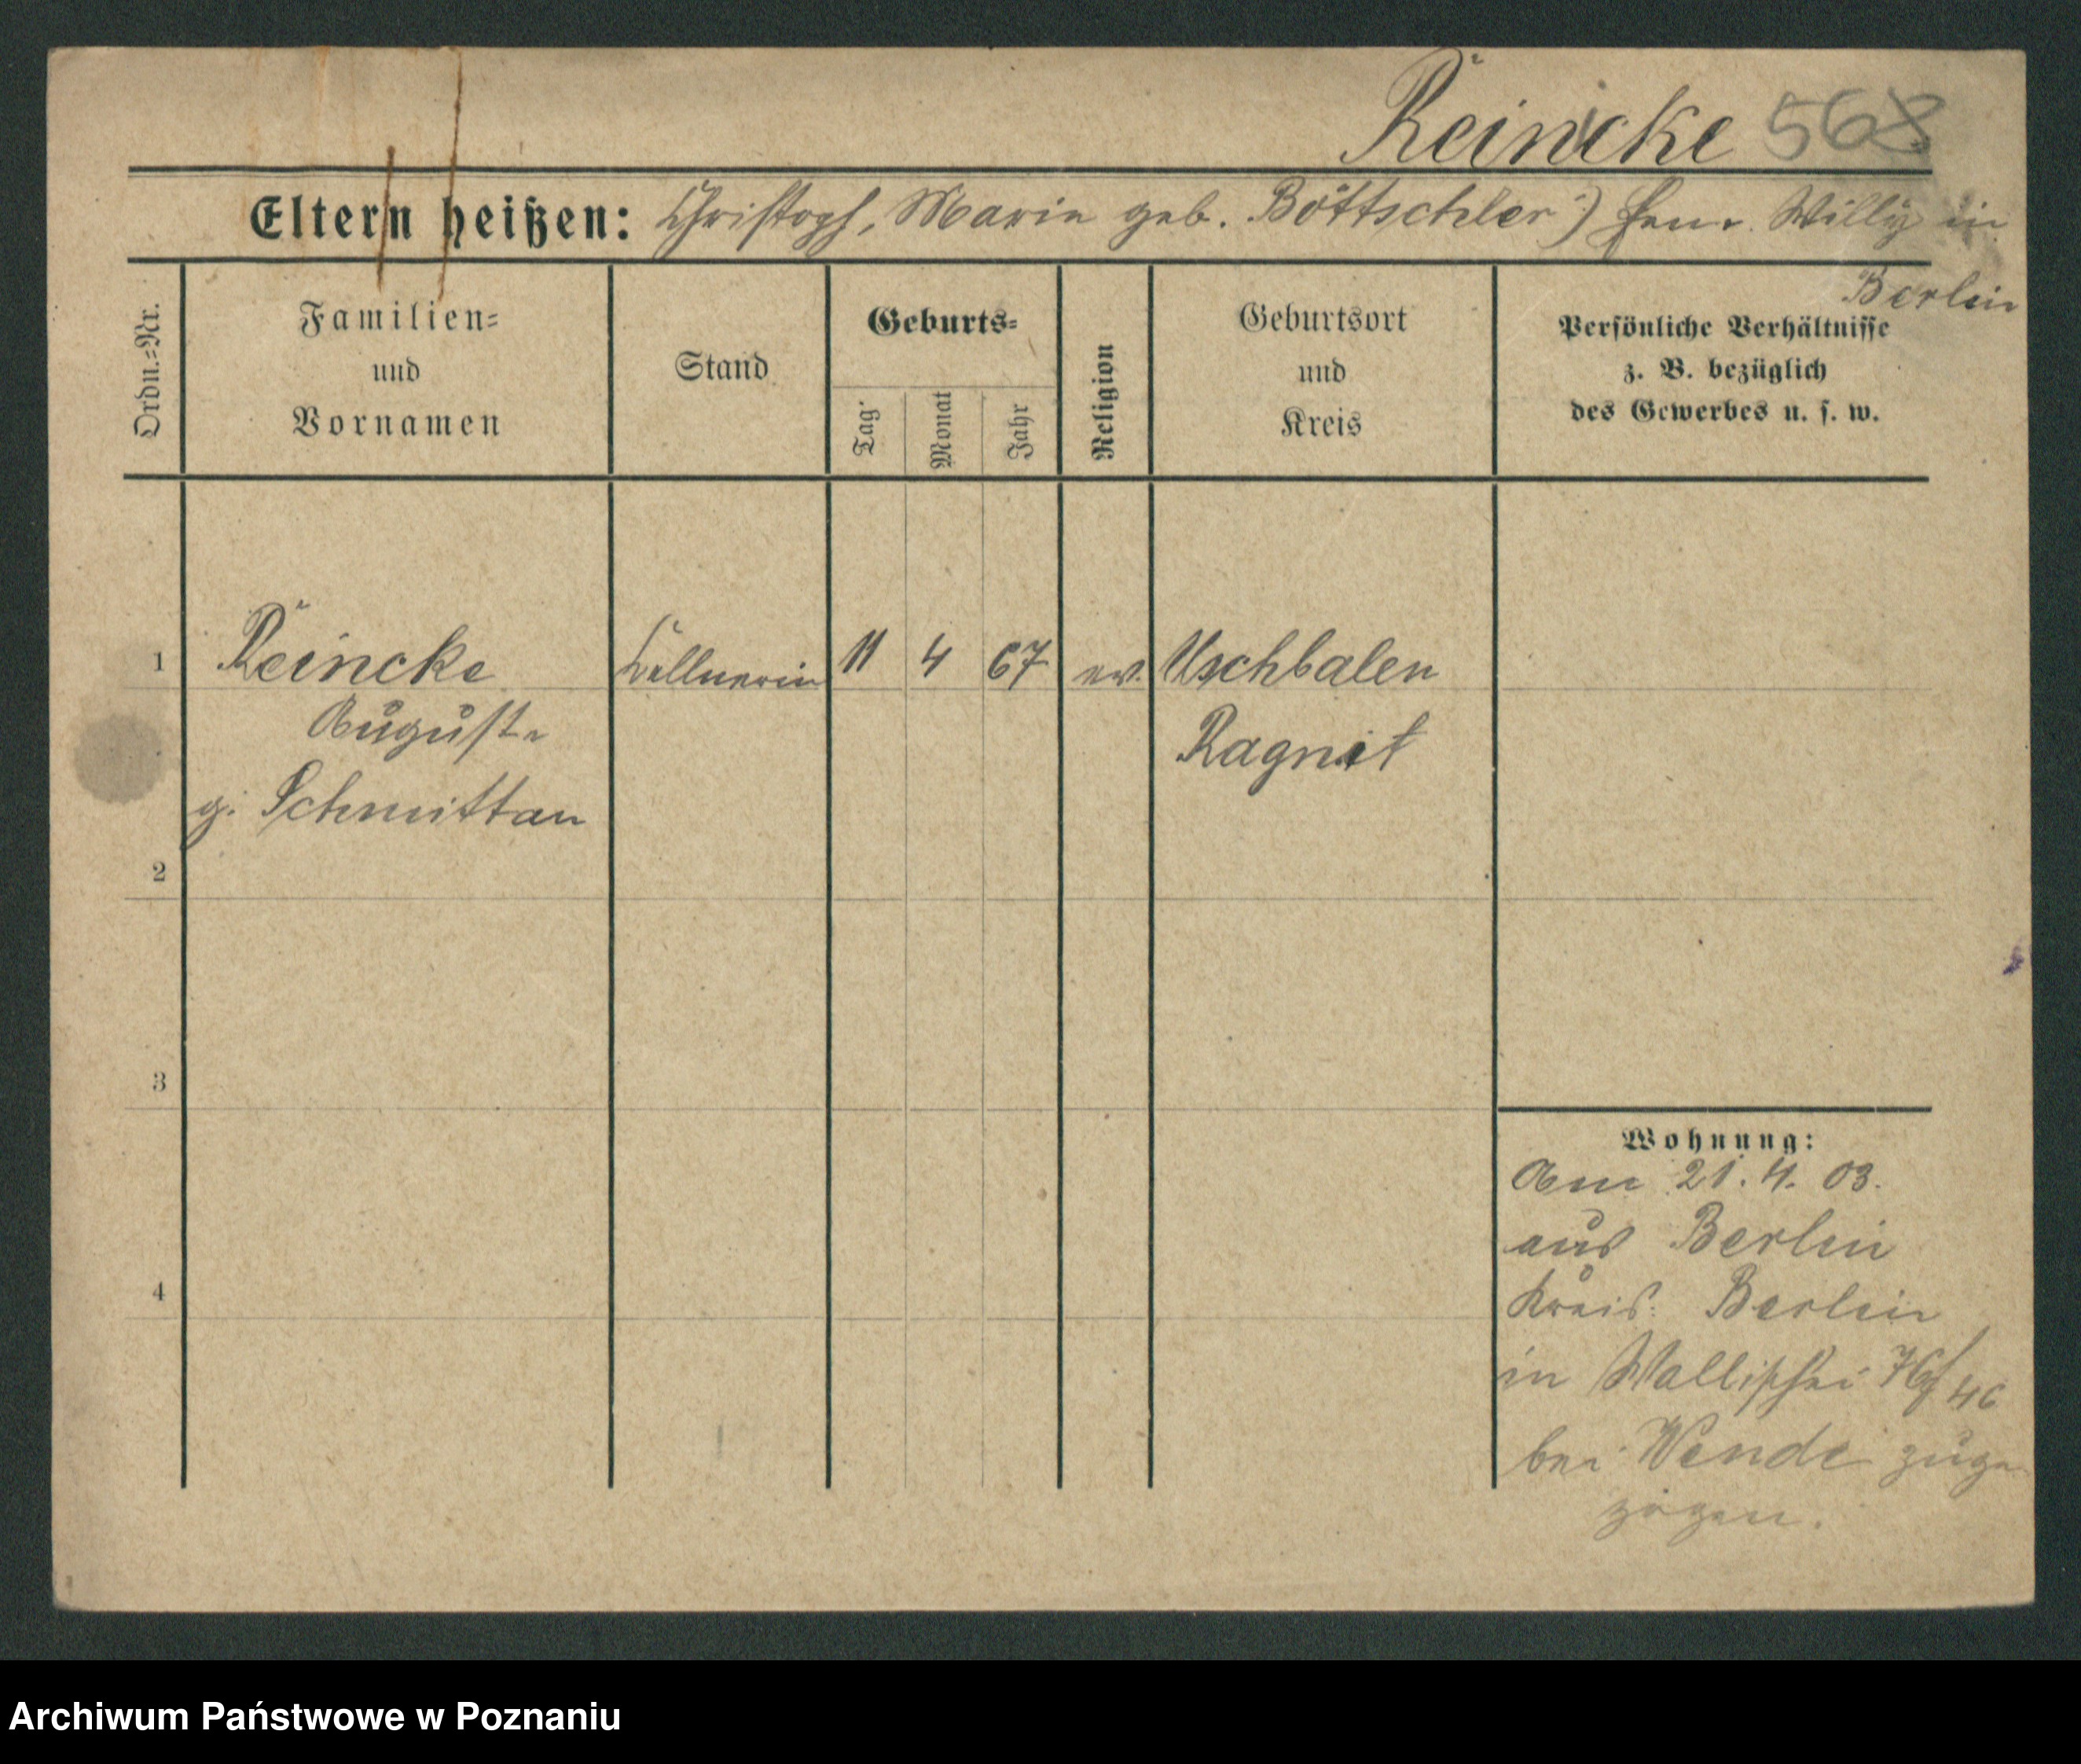 Reincke 568
Eltern heißen: Christoph, Marie geb. Böttschler) Willy in
Berlin
Ordn.=Nr.
Familien=
und
Vornamen
Stand
Geburts=
Tag.
Monat
Jahr
Religion
Geburtsort
und
Kreis
Persönliche Verhältnisse
z. B. bezüglich
des Gewerbes u. s. w.
1 Reincke Kellnerin 11 4 67 ev. Uschbalen
Auguste Ragnit
g. Schmittau
2
3
4
Wohnung:
Am 21. 4. 03.
aus Berlin
Kreis: Berlin
in Wallischei 76/46
bei Wende zuge
zogen.
Archiwum Państwowe w Poznaniu